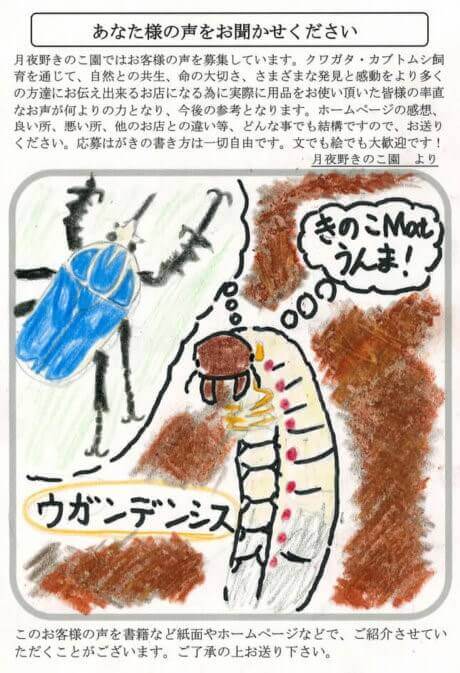 あなた様の声をお聞かせください
月夜野きのこ園ではお客様の声を募集しています。クワガタ・カブトムシ飼
育を通じて、自然との共生、命の大切さ、さまざまな発見と感動をより多く
の方達にお伝え出来るお店になる為に実際に用品をお使い頂いた皆様の率直
なお声が何よりの力となり、今後の参考となります。ホームページの感想、
良い所、悪い所、他のお店との違い等、どんな事でも結構ですので、お送り
ください。応募はがきの書き方は一切自由です。文でも絵でも大歓迎です！
月夜野きのこ園　より
きのこMat
うんま！
ウガンデンシス
このお客様の声を書籍など紙面やホームページなどで、ご紹介させてい
ただくことがございます。ご了承の上お送り下さい。